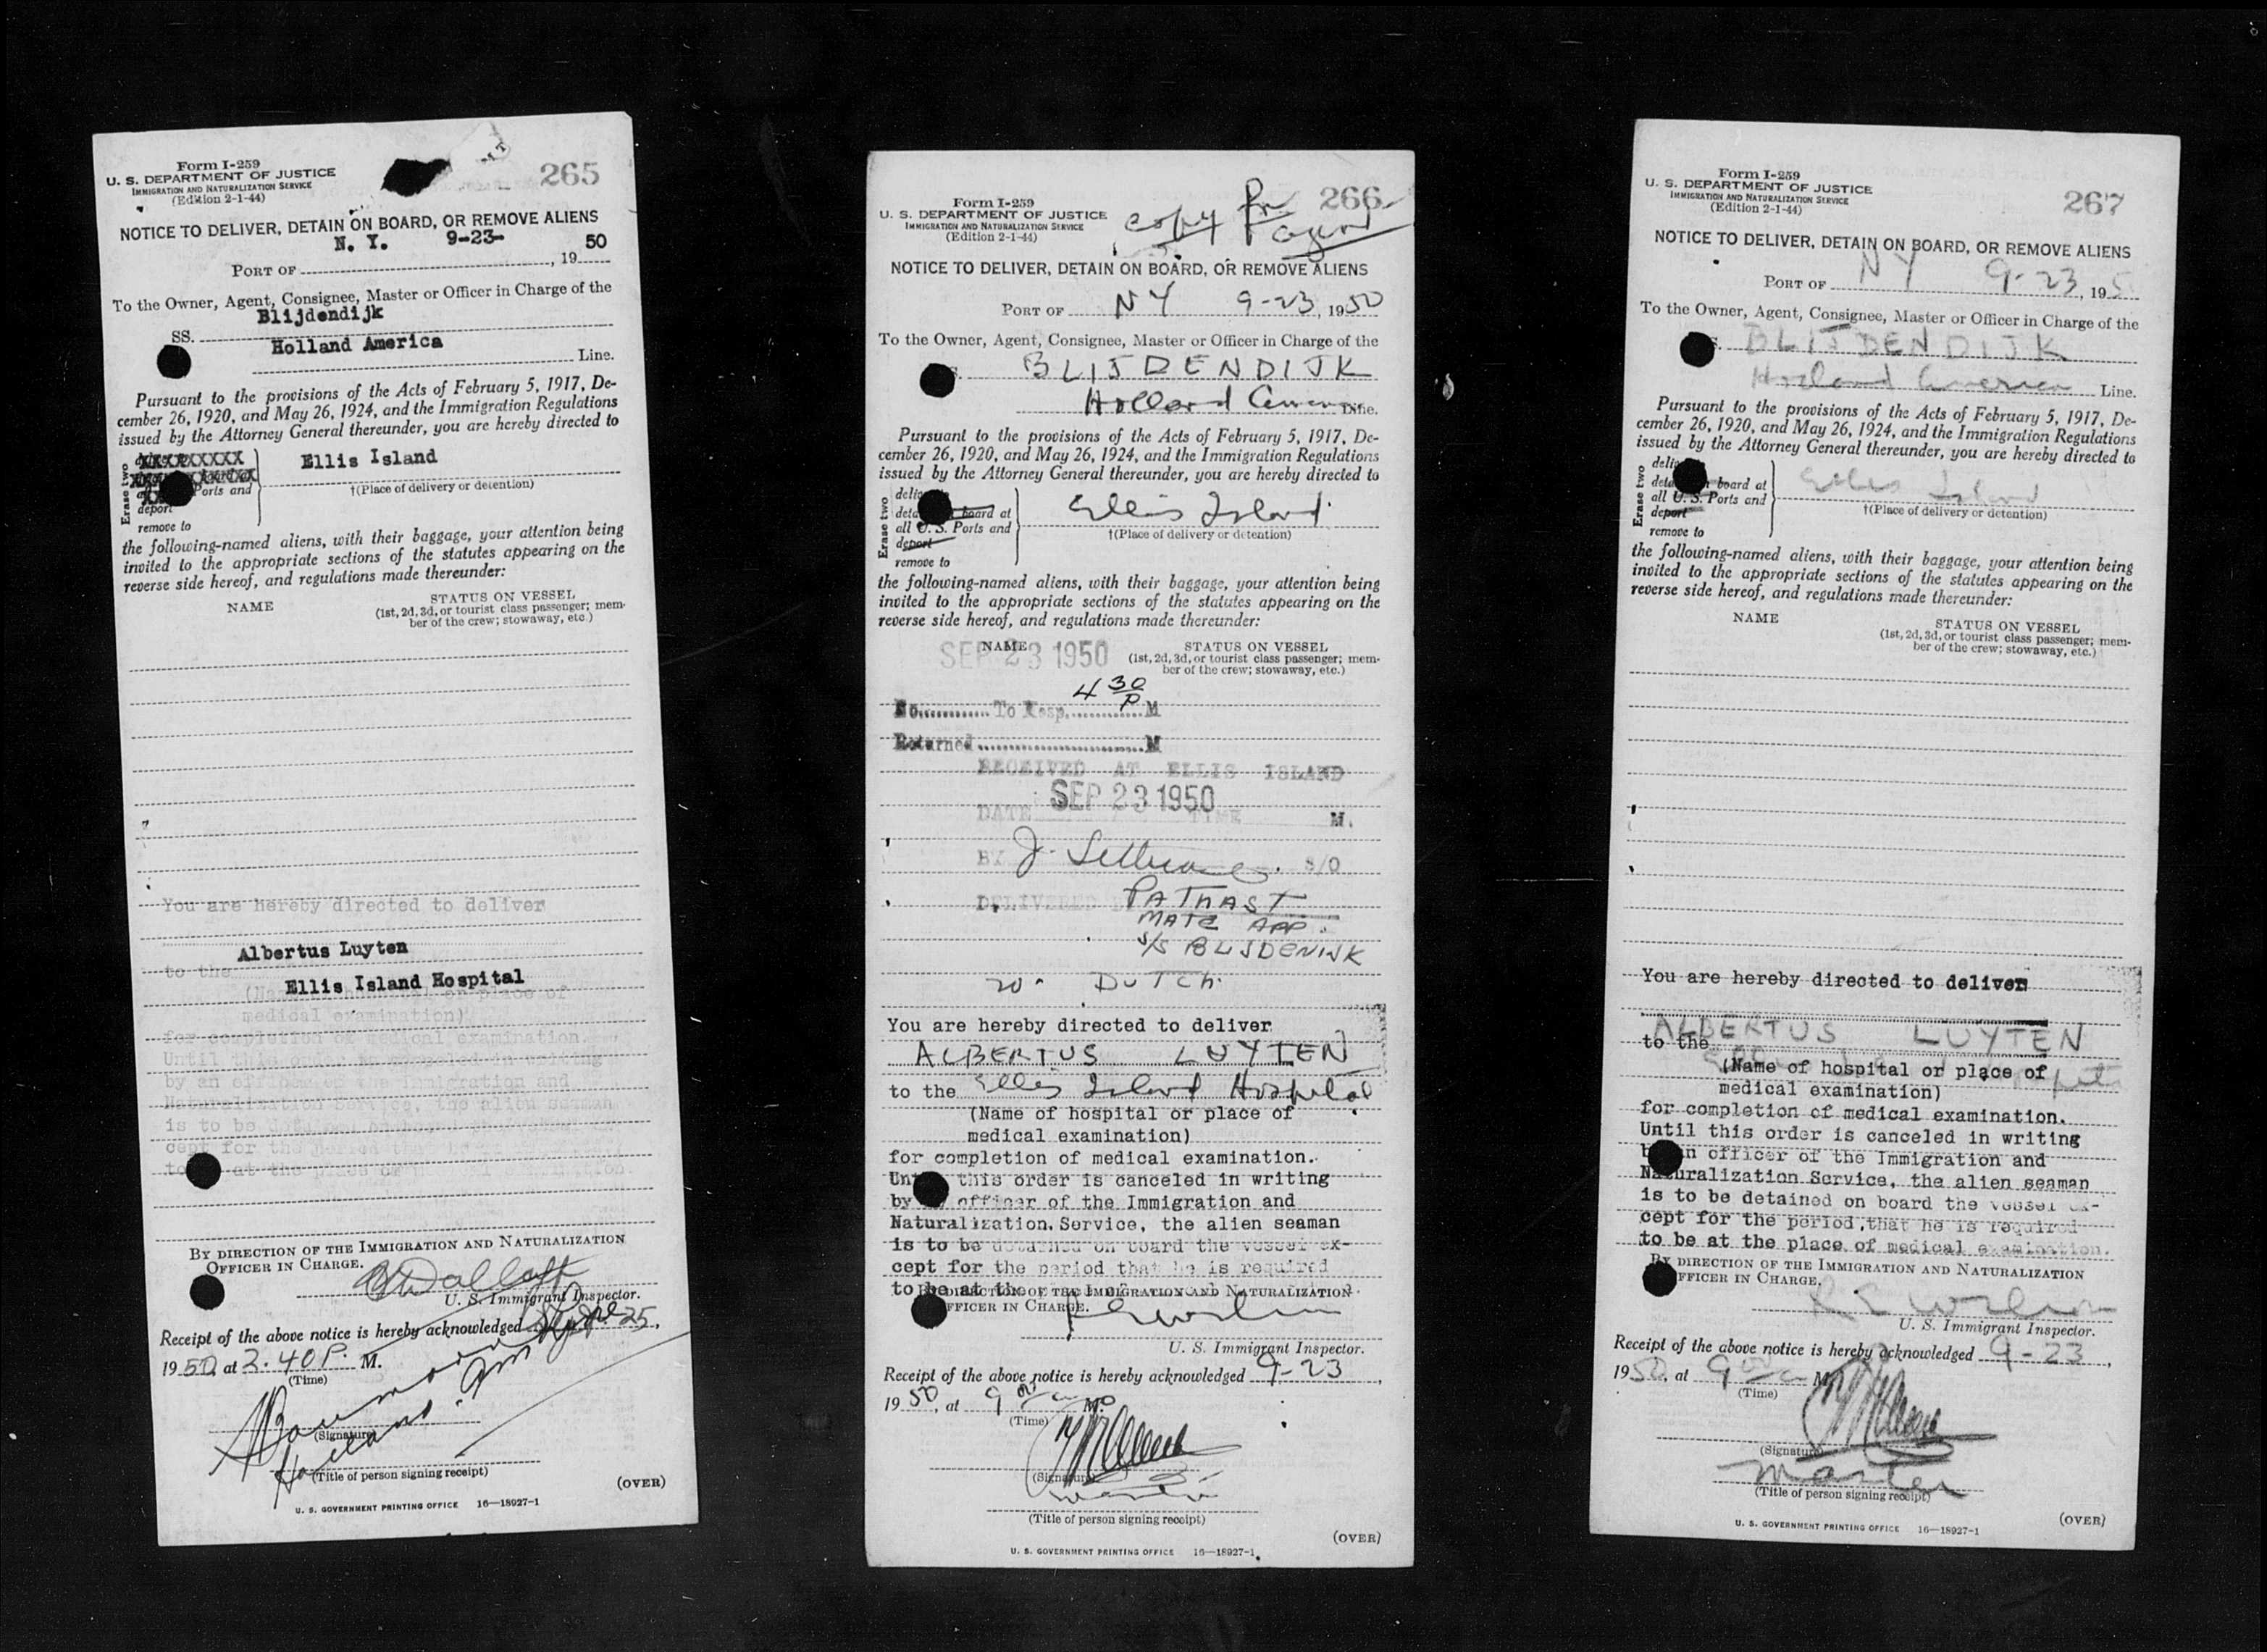 Form I-259
U. S. DEPARTMENT OF JUSTICE
IMMIGRATION AND NATURALIZATION SERVICE
(Edition 2-1-44)
265
NOTICE TO DELIVER, DETAIN ON BOARD, OR REMOVE ALIENS
N. Y. 9-23- 50
PORT OF , 19
To the Owner, Agent, Consignee, Master or Officer in Charge of the
Blijdendijk
SS.
Holland America
Line.
Pursuant to the provisions of the Acts of February 5, 1917, De-
cember 26, 1920, and May 26, 1924, and the Immigration Regulations
issued by the Attorney General thereunder, you are hereby directed to
Erase two
Ellis Island
Ports and
†(Place of delivery or detention)
deport
remove to
the following-named aliens, with their baggage, your attention being
invited to the appropriate sections of the statutes appearing on the
reverse side hereof, and regulations made thereunder:
NAME
STATUS ON VESSEL
(1st, 2d, 3d, or tourist class passenger; mem-
ber of the crew; stowaway, etc.)
You are hereby directed to deliver
Albertus Luyten
to the
Ellis Island Hospital
(Name of hospital or place of
medical examination)
for completion of medical examination.
Until this order is canceled in writing
by an officer of the Immigration and
Naturalization Service, the alien seaman
is to be detained on board the vessel ex-
cept for the period that he is required
to at the place of medical examination.
BY DIRECTION OF THE IMMIGRATION AND NATURALIZATION
OFFICER IN CHARGE.
U. S. Immigrant Inspector.
Receipt of the above notice is hereby acknowledged 25,
1950, at 2.40 P. M.
(Time)
(Signature)
Holland
(Title of person signing receipt)
(OVER)
U. S. GOVERNMENT PRINTING OFFICE 16—18927-1
Form I-259
U. S. DEPARTMENT OF JUSTICE
IMMIGRATION AND NATURALIZATION SERVICE
(Edition 2-1-44)
copy for agent
266
NOTICE TO DELIVER, DETAIN ON BOARD, OR REMOVE ALIENS
PORT OF NY 9-23, 1950
To the Owner, Agent, Consignee, Master or Officer in Charge of the
BLIJDENDIJK
Holland America Line.
Pursuant to the provisions of the Acts of February 5, 1917, De-
cember 26, 1920, and May 26, 1924, and the Immigration Regulations
issued by the Attorney General thereunder, you are hereby directed to
Erase two
board at
Ellis Island
all U. S. Ports and
†(Place of delivery or detention)
deport
remove to
the following-named aliens, with their baggage, your attention being
invited to the appropriate sections of the statutes appearing on the
reverse side hereof, and regulations made thereunder:
NAME
SEP 23 1950
STATUS ON VESSEL
(1st, 2d, 3d, or tourist class passenger; mem-
ber of the crew; stowaway, etc.)
4 30 P
No. To Hosp. M
Returned M
RECEIVED AT ELLIS ISLAND
SEP 23 1950
DATE TIME M.
BY J. S/O
DELIVERED PATHAST
MATE APP.
S/S BLIJDENIJK
W. DUTCH.
You are hereby directed to deliver
ALBERTUS LUYTEN
to the Ellis Island Hospital
(Name of hospital or place of
medical examination)
for completion of medical examination.
Until this order is canceled in writing
by officer of the Immigration and
Naturalization Service, the alien seaman
is to be detained on board the vessel ex-
cept for the period that he is required
to be at the
BY DIRECTION OF THE IMMIGRATION AND NATURALIZATION
OFFICER IN CHARGE.
U. S. Immigrant Inspector.
Receipt of the above notice is hereby acknowledged 9-23,
1950, at 9 00 a M.
(Time)
(Signature)
Master
(Title of person signing receipt)
(OVER)
U. S. GOVERNMENT PRINTING OFFICE 16—18927-1
Form I-259
U. S. DEPARTMENT OF JUSTICE
IMMIGRATION AND NATURALIZATION SERVICE
(Edition 2-1-44)
267
NOTICE TO DELIVER, DETAIN ON BOARD, OR REMOVE ALIENS
PORT OF NY 9-23, 195
To the Owner, Agent, Consignee, Master or Officer in Charge of the
BLIJDENDIJK
Holland America Line.
Pursuant to the provisions of the Acts of February 5, 1917, De-
cember 26, 1920, and May 26, 1924, and the Immigration Regulations
issued by the Attorney General thereunder, you are hereby directed to
Erase two
board at
Ellis Island
all U. S. Ports and
†(Place of delivery or detention)
deport
remove to
the following-named aliens, with their baggage, your attention being
invited to the appropriate sections of the statutes appearing on the
reverse side hereof, and regulations made thereunder:
NAME
STATUS ON VESSEL
(1st, 2d, 3d, or tourist class passenger; mem-
ber of the crew; stowaway, etc.)
You are hereby directed to deliver
ALBERTUS LUYTEN
to the
(Name of hospital or place of
medical examination)
for completion of medical examination.
Until this order is canceled in writing
officer of the Immigration and
Naturalization Service, the alien seaman
is to be detained on board the vessel ex-
cept for the period that he is required
to be at the place of medical examination.
BY DIRECTION OF THE IMMIGRATION AND NATURALIZATION
OFFICER IN CHARGE.
U. S. Immigrant Inspector.
Receipt of the above notice is hereby acknowledged 9-23,
1950, at 9 00 a M.
(Time)
(Signature)
Master
(Title of person signing receipt)
(OVER)
U. S. GOVERNMENT PRINTING OFFICE 16—18927-1